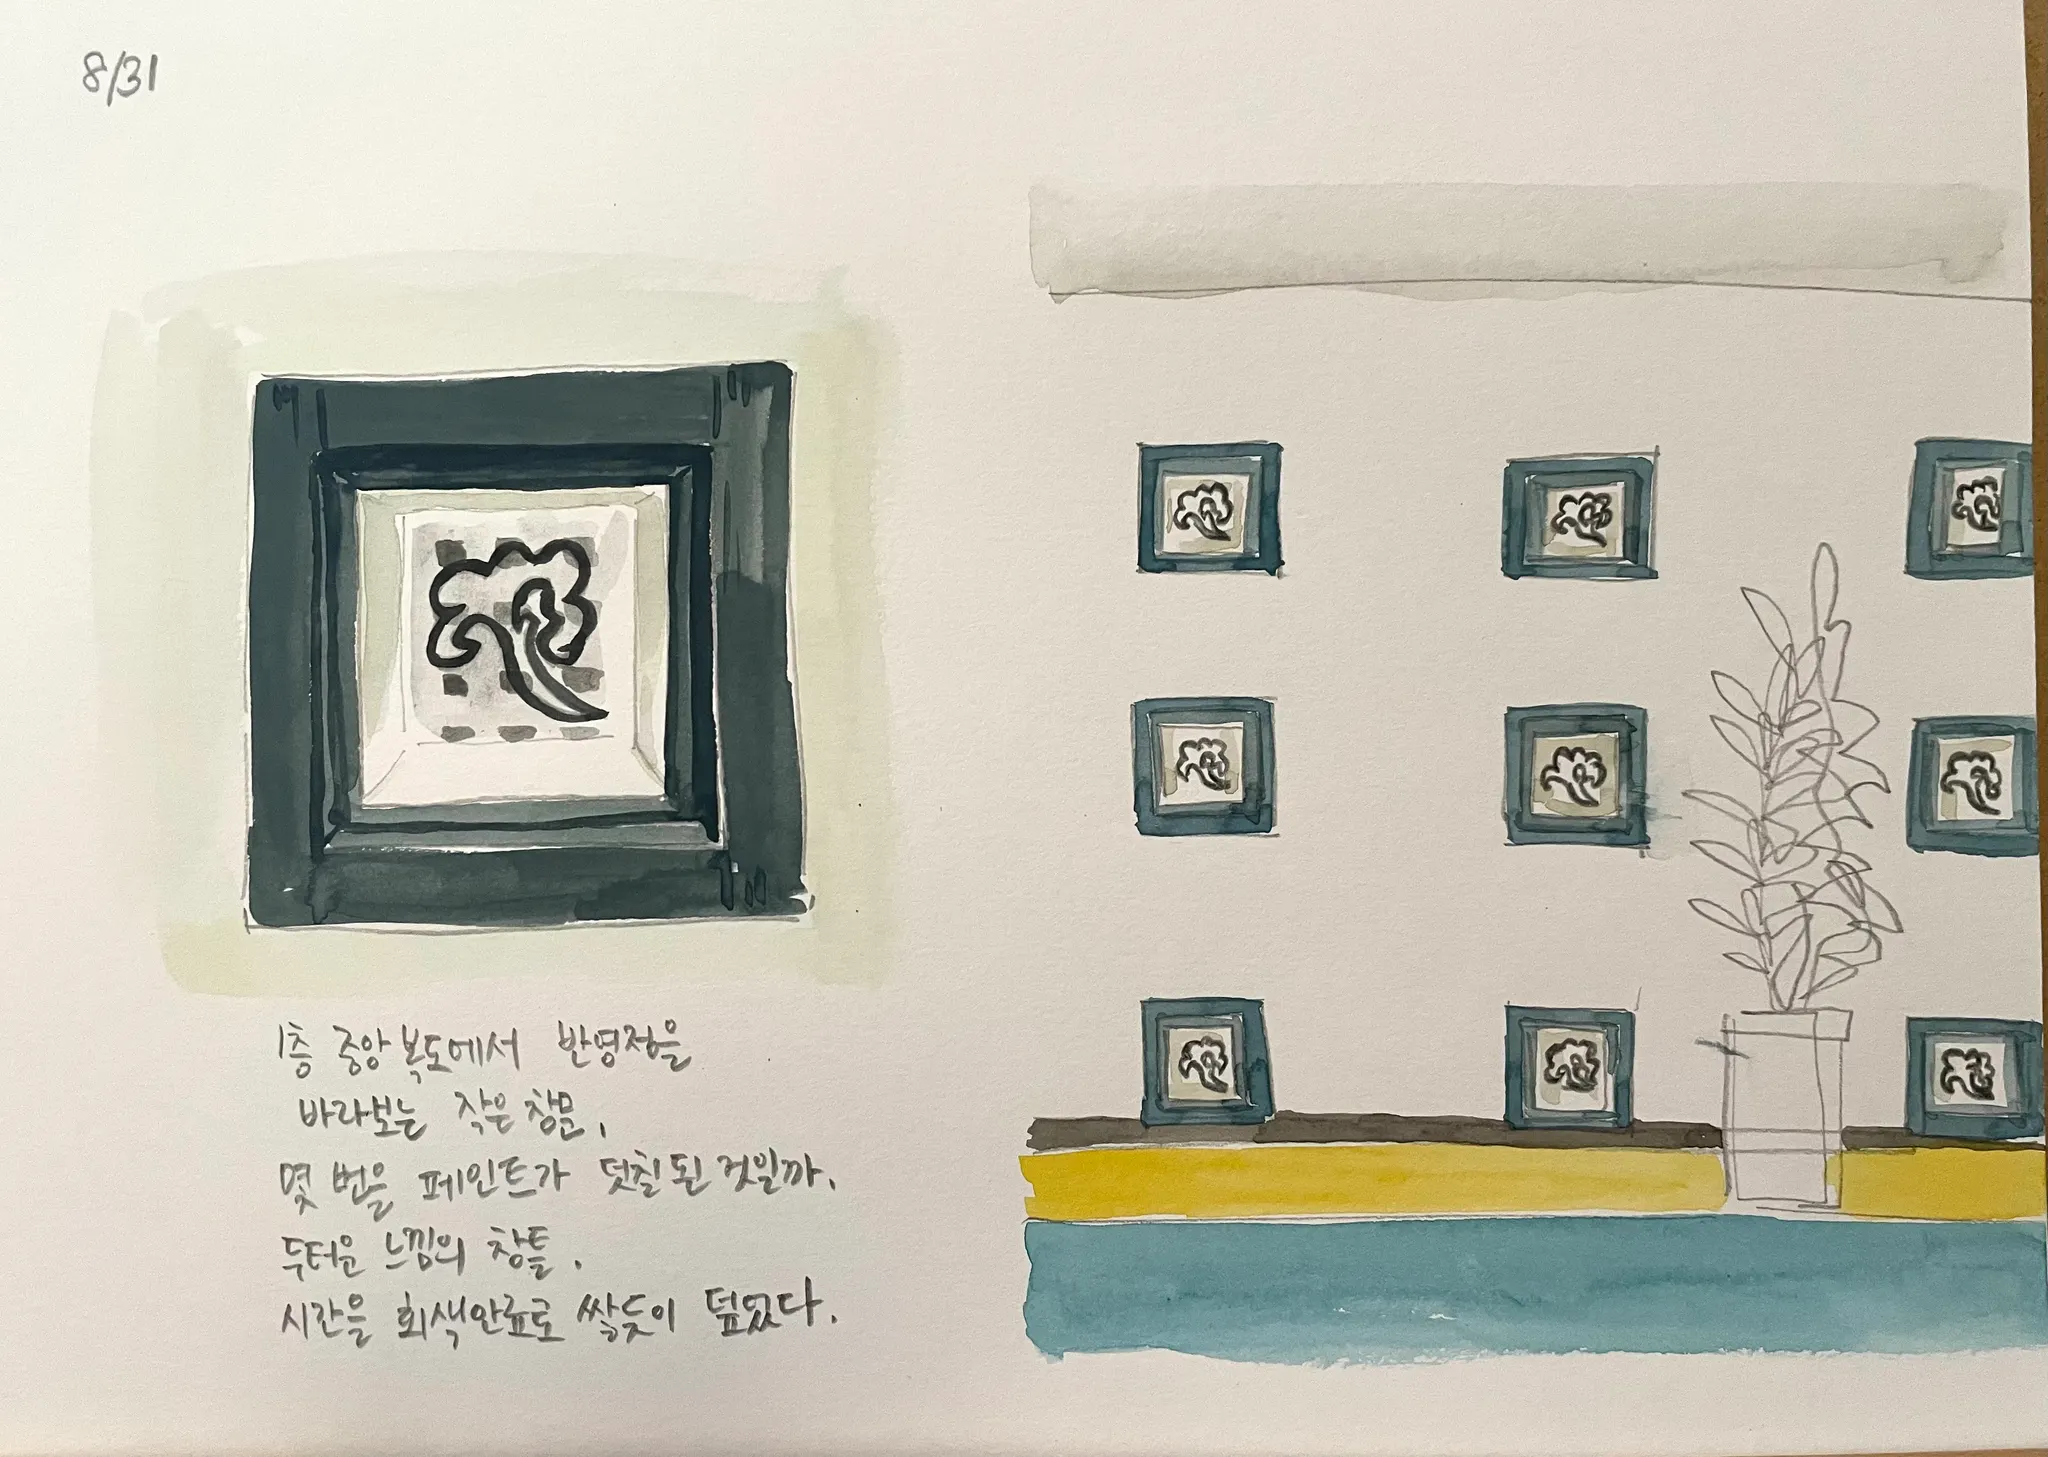 8/31
1층 중앙복도에서 반영정을
바라보는 작은 창문,
몇 번을 페인트가 덧칠 된 것일까.
두터운 느낌의 창틀.
시간을 회색안료로 쌓듯이 덮었다.